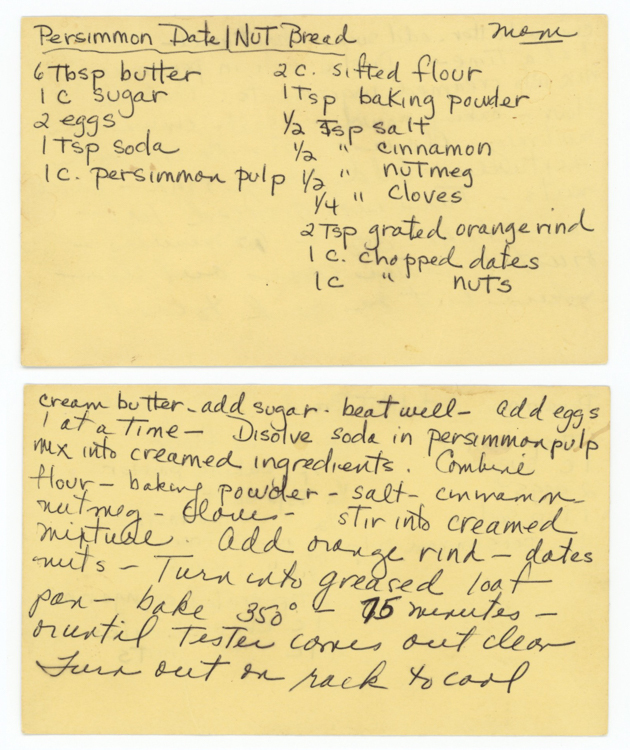 Persimmon Date/Nut Bread
Mom
6 Tbsp butter
1 c sugar
2 eggs
1 Tsp soda
1 c. persimmon pulp
2 c. sifted flour
1 Tsp baking powder
1/2 Tsp salt
1/2 " cinnamon
1/2 " nutmeg
1/4 " cloves
2 Tsp grated orange rind
1 c. chopped dates
1 c " nuts
cream butter - add sugar - beat well - add eggs
1 at a Time - Disolve soda in persimmon pulp
mix into creamed ingredients. Combine
flour - baking powder - salt - cinnamon
nutmeg - cloves - stir into creamed
mixture. Add orange rind - dates
nuts - Turn into greased loaf
pan - bake 350° - 75 minutes -
or until Tester comes out clean
Turn out on rack to cool